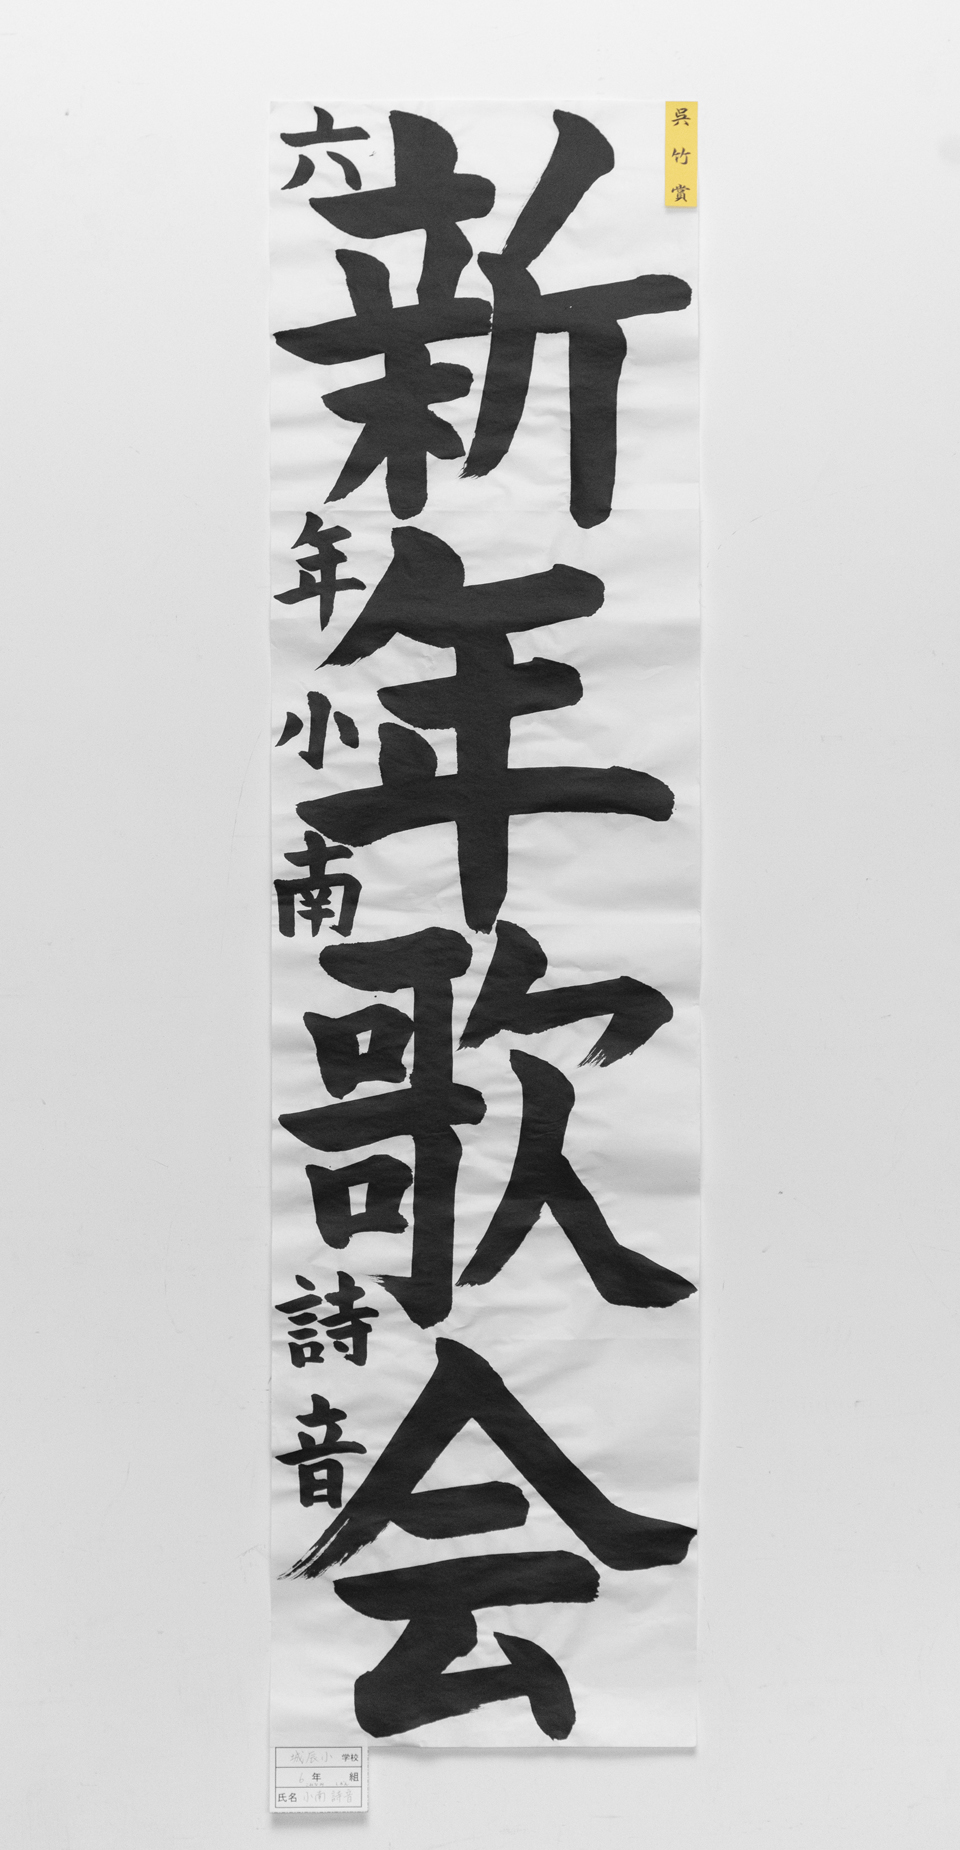 呉竹賞
新年歌会
六年 小南詩音
城辰小 学校
6年 組
氏名 小南 詩音